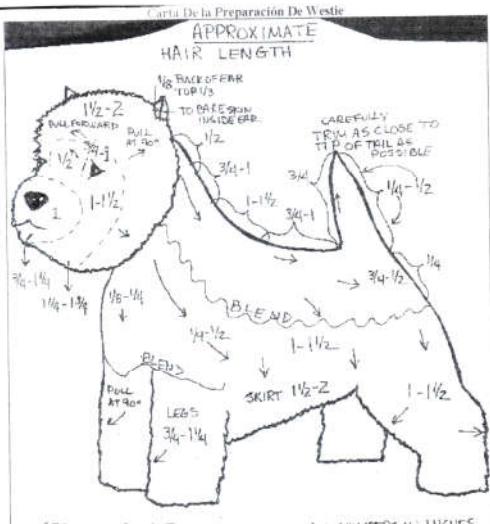 Carta De la Preparación De Westie
APPROXIMATE
HAIR LENGTH
1/8 BACK OF EAR
TOP 1/3
TO BARE SKIN
INSIDE EAR
1½-2
PULL FORWARD
PULL
AT 90°
1/2
3/4-1
1
1-1½
3/4-1¼
1¼-1¾
1/2
3/4-1
1-1½
3/4-1
CAREFULLY
TRIM AS CLOSE TO
TIP OF TAIL AS
POSSIBLE
3/4
1/4-1/2
1/4
3/4-1/2
1/8-1/4
1/4-1/2
BLEND
1-1½
BLEND
PULL
AT 90°
LEGS
3/4-1¼
SKIRT 1½-2
1-1½